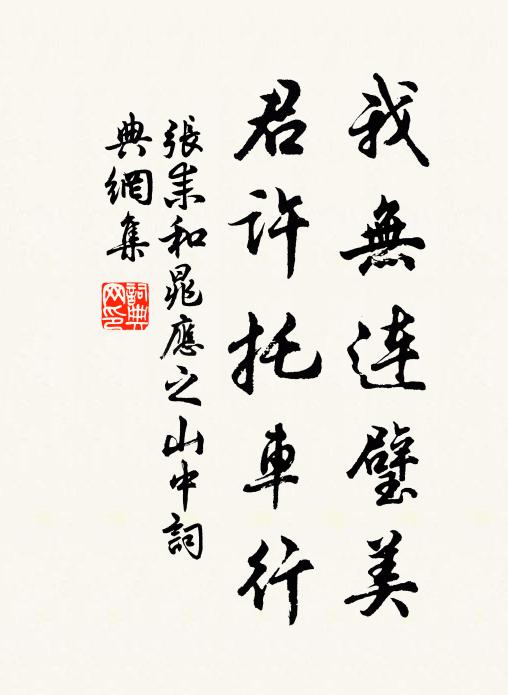 我無連璧美
君許托車行
張耒和晁應之山中詞
典網集
詞典
网印